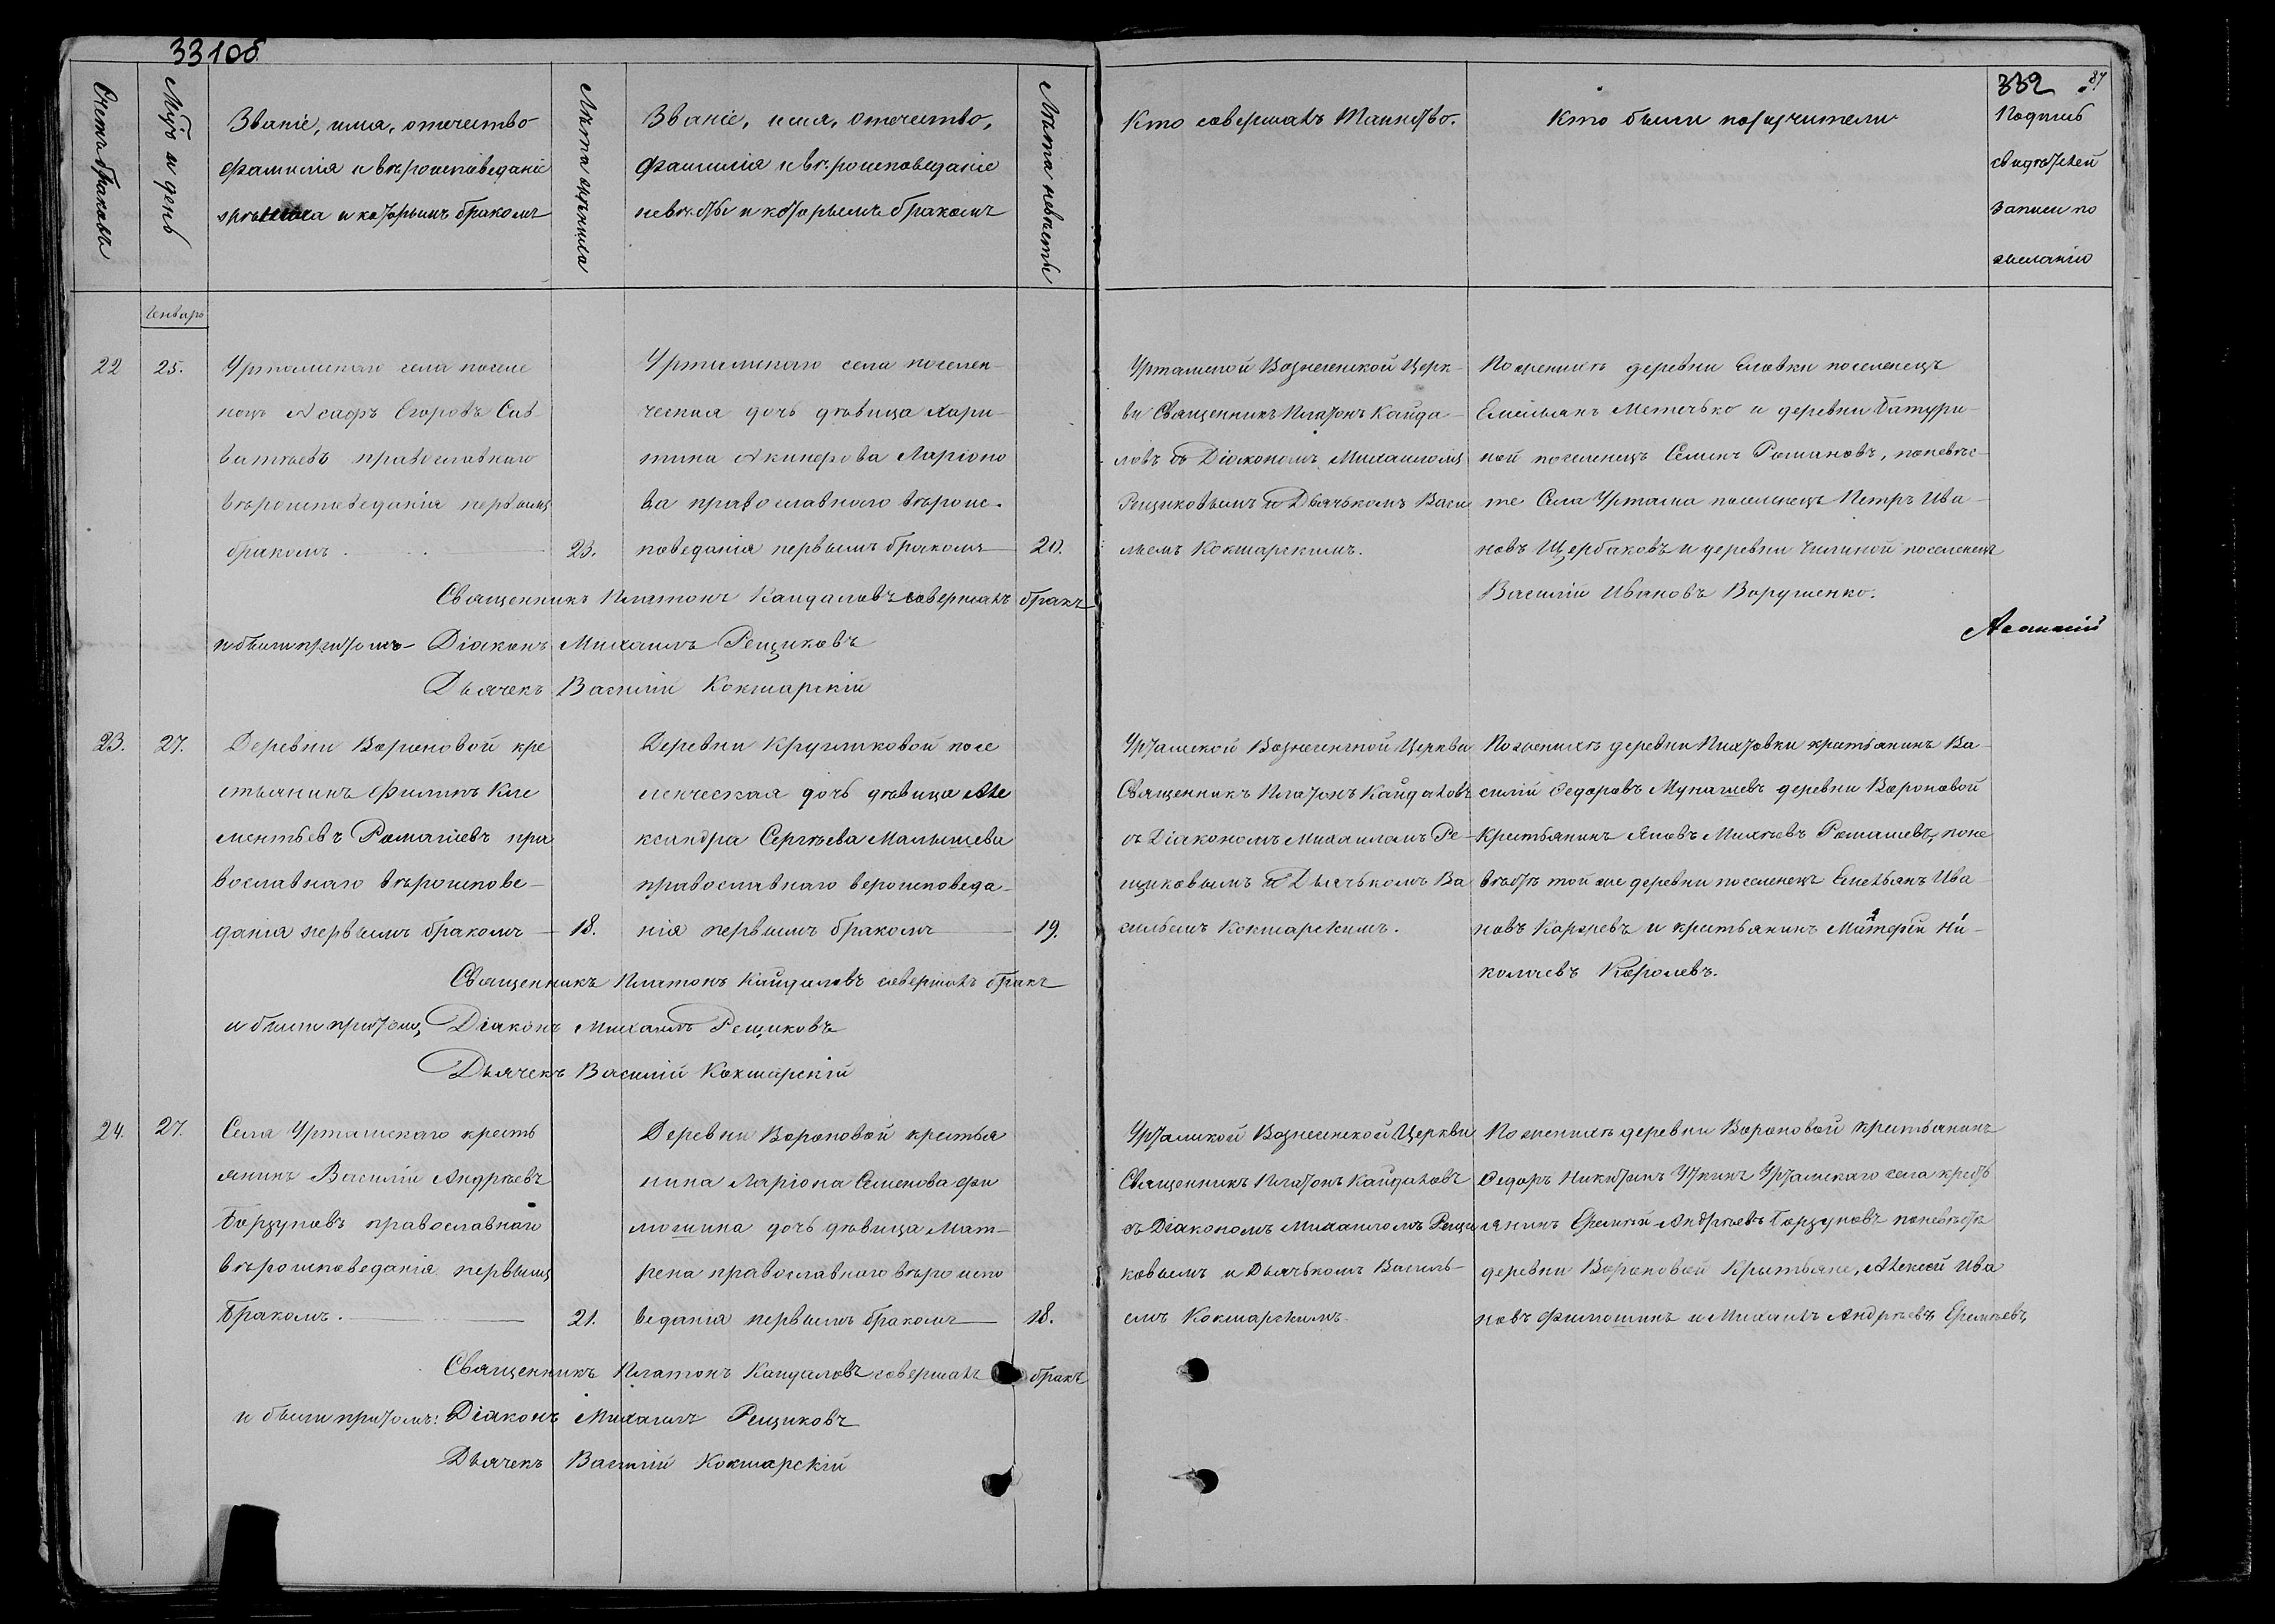 331об
332
87
Счетъ браковъ
Мѣсяцъ и день
Званіе, имя, отечество
фамилія и вѣроисповеданіе
жениха и которымъ бракомъ
Лѣта жениха
Званіе, имя, отечество,
фамилія и вѣроисповеданіе
невѣсты и которымъ бракомъ
Лѣта невѣсты
Кто совершалъ Таинство.
Кто были поручители
Подпись
свидѣтелей
записи по
желанію
Январь
22
25.
Уртамскаго села поселе
нецъ Асафъ Егоровъ Сав-
ватѣевъ православнаго
вѣроисповеданія первымъ
бракомъ.
23.
Уртамскаго села поселен-
ческая дочь дѣвица Хари-
тина Акинфова Ларіоно
ва православнаго вѣроис-
поведанія первымъ бракомъ
20.
Уртамской Вознесенской Церк-
ви Священникъ Платонъ Кайда-
ловъ съ Діакономъ Михаиломъ
Рещиковымъ и Дьячькомъ Васи
льемъ Кокшарскимъ.
По женихѣ деревни Еловки поселенецъ
Емельянъ Метечько и деревни Батури-
ной поселенецъ Семенъ Романовъ, по невѣс-
те Села Уртама поселенецъ Петръ Ива-
новъ Щербаковъ и деревни Чилиной поселенецъ
Василій Ивановъ Ворушенко.
Священникъ Платонъ Кайдаловъ совершалъ бракъ
и были притомъ Діаконъ Михаилъ Рещиковъ
Дьячекъ Василій Кокшарскій
23.
27.
Деревни Вороновой кре
стьянинъ Филипъ Кле
ментьевъ Ромашевъ пра
вославнаго вѣроисповѣ-
данія первымъ бракомъ
18.
Деревни Кругликовой посе
ленческая дочь дѣвица Але
ксандра Сергѣева Малышева
православнаго вероисповеда-
нія первымъ бракомъ
19.
Уртамской Вознесенской Церкви
Священникъ Платонъ Кайдаловъ
съ Діакономъ Михаиломъ Ре-
щиковымъ и Дьячькомъ Ва
сильемъ Кокшарскимъ.
По женихѣ деревни Пихтовки крестьянинъ Ва-
силій Федоровъ Мунашевъ деревни Вороновой
Крестьянинъ Яковъ Михѣевъ Ромашевъ, поне
вѣстѣ той же деревни поселенецъ Емельянъ Ива-
новъ Королевъ и крестьянинъ Матфей Ни-
колаевъ Королевъ.
Священникъ Платонъ Кайдаловъ совершалъ бракъ
и были притомъ Діаконъ Михаилъ Рещиковъ
Дьячекъ Василій Кокшарскій
24.
27.
Села Уртамскаго кресть
янинъ Василій Андрѣевъ
Борзуновъ православнаго
вѣроисповеданія первымъ
бракомъ.
21.
Деревни Вороновой крестья
нина Ларіона Семенова Фи
мошина дочь дѣвица Мат-
рена православнаго вѣроиспо
веданія первымъ бракомъ
18.
Уртамской Вознесенской Церкви
Священникъ Платонъ Кайдаловъ
съ Діакономъ Михаиломъ Рещи
ковымъ и Дьячькомъ Василь-
емъ Кокшарскимъ.
По женихѣ деревни Вороновой крестьянинъ
Федоръ Никитинъ Уткинъ Уртамскаго села кресть
янинъ Еремѣй Андрѣевъ Борзуновъ по невѣстѣ
деревни Вороновой Крестьяне, Алексей Ива
новъ Фимошинъ и Михаилъ Андрѣевъ Еремѣевъ
Священникъ Платонъ Кайдаловъ совершалъ бракъ
и были притомъ: Діаконъ Михаилъ Рещиковъ
Дьячекъ Василій Кокшарскій